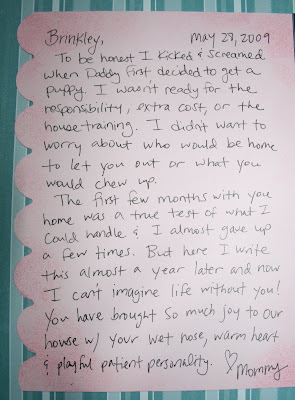 Brinkley, May 28, 2009
To be honest I kicked & screamed
when Daddy first decided to get a
puppy. I wasn't ready for the
responsibility, extra cost, or the
housetraining. I didn't want to
worry about who would be home
to let you out or what you
would chew up.
The first few months with you
home was a true test of what I
could handle & I almost gave up
a few times. But here I write
this almost a year later and now
I can't imagine life without you!
You have brought so much joy to our
house w/ your wet nose, warm heart
& playful patient personality. ♡Mommy